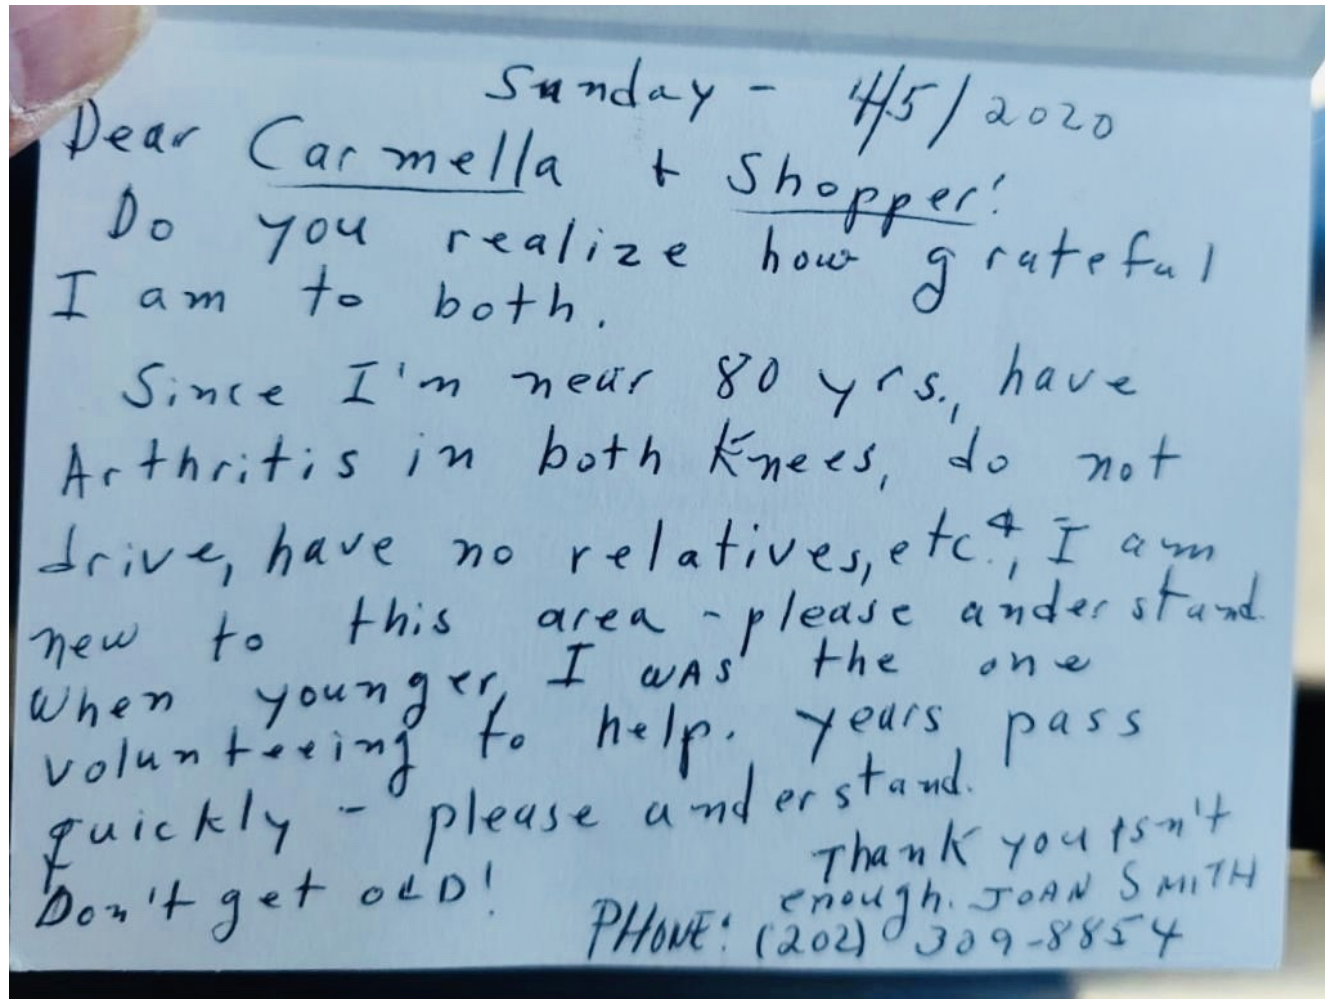 Sunday - 4/5/2020
Dear Carmella + Shopper!
Do you realize how grateful
I am to both.
Since I'm near 80 yrs., have
Arthritis in both Knees, do not
drive, have no relatives, etc., I am
new to this area - please understand.
When younger, I WAS the one
volunteeing to help. years pass
quickly - please understand.
Don't get OLD!
Thank you isn't
enough. JOAN SMITH
PHONE: (202) 309-8854